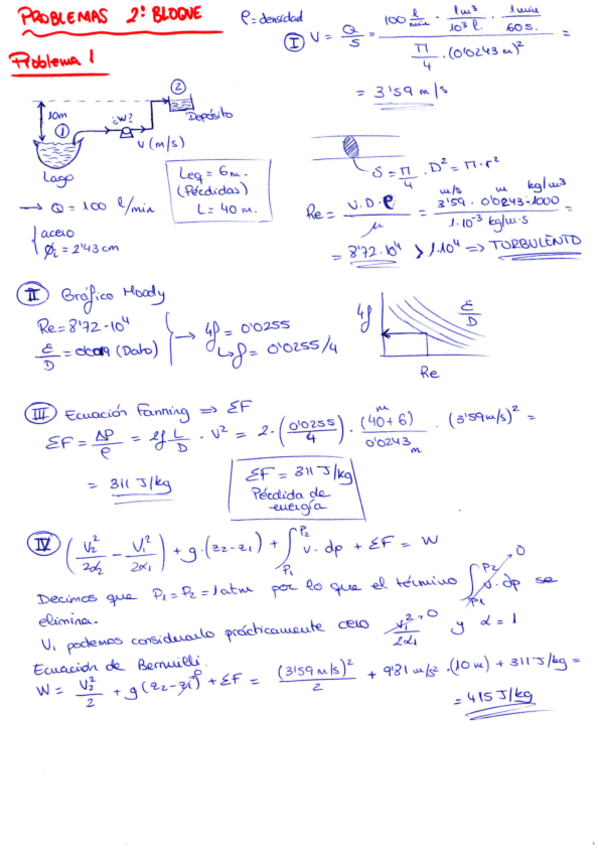 PROBLEMAS 2º BLOQUE
ρ = densidad
Problema 1
10m
①
¿W?
②
Depósito
V (m/s)
Lago
Leq = 6m.
(Pérdidas)
L = 40 m.
→ Q = 100 l/min
acero
φi = 2'43 cm
Ⓘ V = Q/S = (100 l/min · 1m³/10³ l. · 1min/60 s.) / (π/4 · (0'0243 m)²) =
= 3'59 m/s
S = π/4 · D² = π · r²
Re = V · D · ρ / μ = 3'59 · 0'0243 · 1000 / 1·10⁻³ kg/m·s =
m/s m kg/m³
= 8'72·10⁴ > 1·10⁴ => TURBULENTO
II Gráfico Moody
Re = 8'72·10⁴
ε/D = 0'0019 (Dato)
→ 4f = 0'0255
↳ f = 0'0255/4
4f
ε/D
Re
III Ecuación Fanning => ΣF
ΣF = ΔP/ρ = 2f L/D · V² = 2 · (0'0255/4) · (40+6) m / 0'0243 m · (3'59 m/s)² =
= 311 J/kg
ΣF = 311 J/kg
Pérdida de
energía
IV (V₂²/2α₂ − V₁²/2α₁) + g · (z₂−z₁) + ∫P₁P₂ v · dp + ΣF = W
Decimos que P₁ = P₂ = 1atm por lo que el término ∫P₁P₂ v · dp → 0 se
elimina.
V₁ podemos considerarlo prácticamente cero V₁²/2α₁ → 0 y α = 1
Ecuación de Bernuilli.
W = V₂²/2 + g (z₂ − z₁⁰) + ΣF = (3'59 m/s)²/2 + 9'81 m/s² · (10 m) + 311 J/kg =
= 415 J/kg